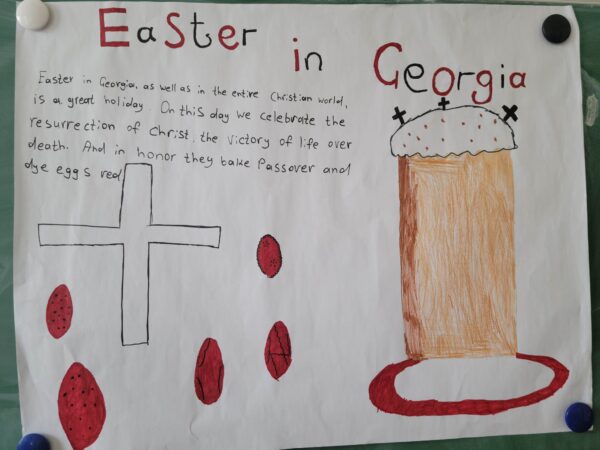 Easter in Georgia
Easter in Georgia, as well as in the entire Christian world,
is a great holiday. On this day we celebrate the
resurrection of Christ, the victory of life over
death. And in honor they take Passover and
dye eggs red